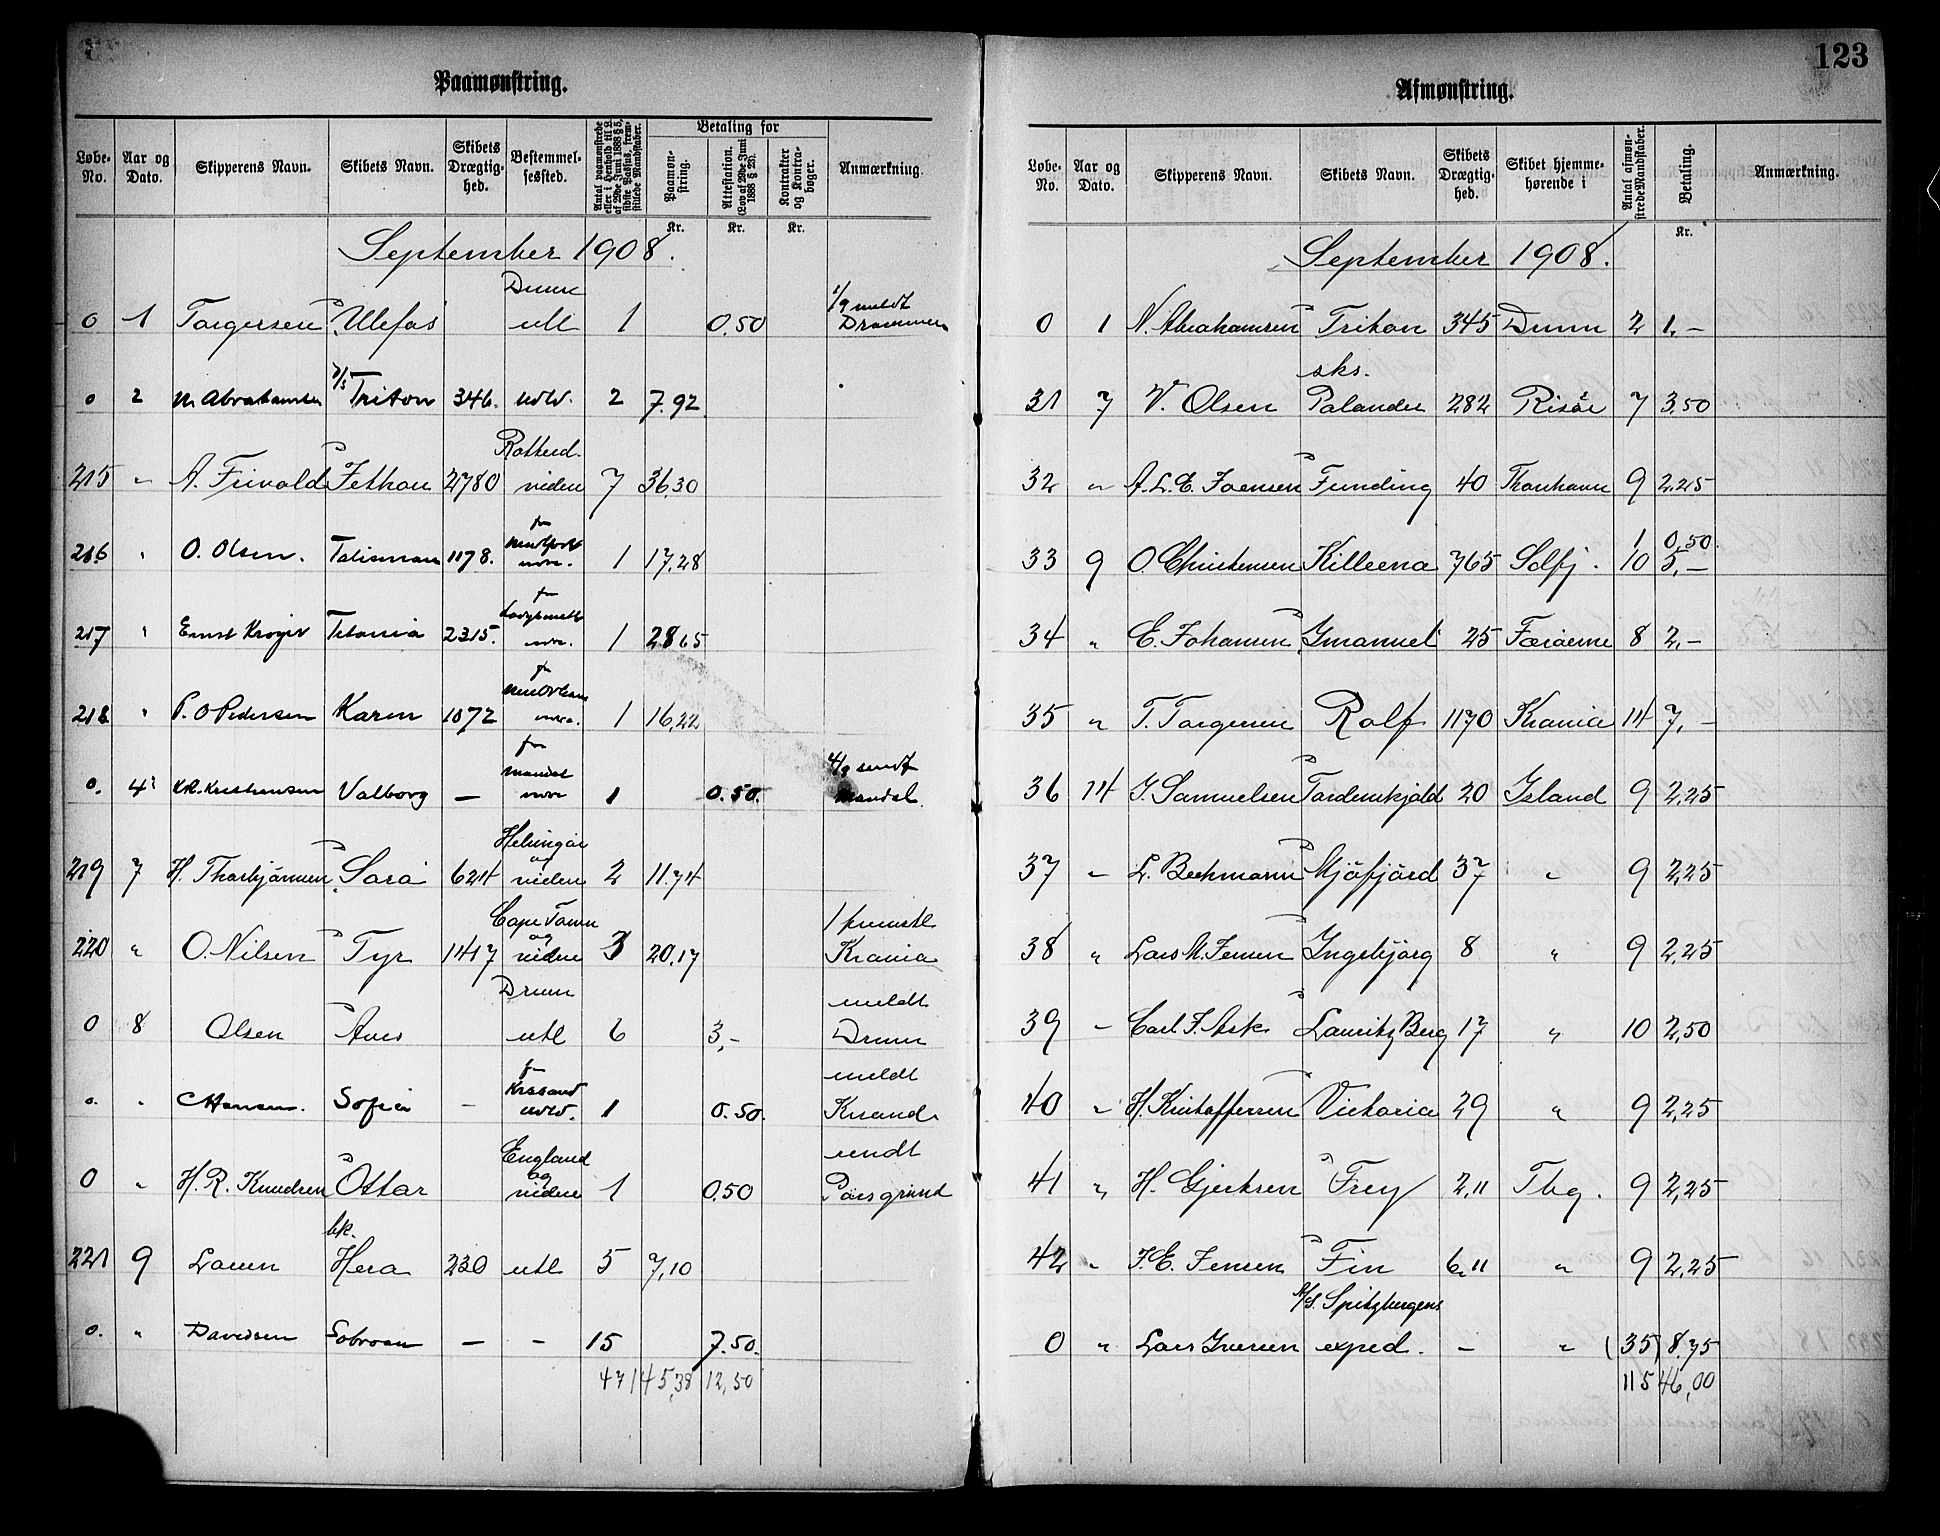 123
Paamønstring.
Løbe-No. Aar og Dato. Skipperens Navn. Skibets Navn. Skibets Drægtighed. Bestemmelsessted. Antal paamønstrede eller i Henhold til L. af 29de Juni 1888 § 5, sidste Passus, fremstillede Mandskaber. Betaling for Paamønstring. Attestation. (Lov af 29de Juni 1888 § 23). Kontrakter og Kontrabøger. Anmærkning.
Kr. Kr. Kr.
September 1908.
0 1 Torgersen Ulefos Drmn utl 1 0,50 1/9 meldt Drammen
0 2 N Abrahamsen D/S Triton 346. utld. 2 7.92
215 " A. Frivold Jethou 2780 Rotterd. viden 7 36,30
216 " O. Olsen. Talisman 1178. 1 17,28
217 " Ernst Kroger Titania 2315. 1 28 65
218 " P. O Pedersen Karin 1072 1 16,22
0. 4 Kristiansen Valborg — fra Mandal 1 0.50. 4/9 sendt Mandal.
219 7 H. Thorbjörnsen Sara 624 Helsingör og videre 2 11.74
220 " O. Nilsen Tyr 1417 Cape Town og videre 3 20,17 1 fremstl Krania
0 8 Olsen Ares Drmn utl 6 3,- meldt Drmn
0. " Hansen. Sofie - Krsand utld. 1 0.50. meldt Krsand
0 " H. R. Knudsen Ottar England og videre 1 0,50 sendt Porsgrund
221 9 Larsen bk. Hera 230 utl 5 7,10
0. " Davidsen Sobraon — - 15 7.50.
47 145,38 12,50
Afmønstring.
Løbe-No. Aar og Dato. Skipperens Navn. Skibets Navn. Skibets Drægtighed. Skibet hjemmehørende i Antal afmønstrede Mandskaber. Betaling. Anmærkning.
Kr.
September 1908.
0 1 N. Abrahamsen Triton 345 Drmn 2 1,-
31 7 V. Olsen sks. Palander 282 Risör 7 3,50
32 " A. L. E. Joensen Funding 40 Thorshavn 9 2.25
1 0,50
33 9 O. Christensen Killeena 765 Sdfj. 10 5,—
34 " E. Johansen Imanuel 25 Færöerne 8 2,-
35 " T. Torgersen Rolf 1170 Krania 14 7,-
36 14 J. Samuelsen Tordenskjold 20 Island 9 2,25
37 " L. Beckmann Mjöfjörd 37 " 9 2,25
38 " Lars M. Jensen Ingebjörg 8 " 9 2,25
39 " Carl J. Ask Lauritz Berg 17 " 10 2,50
40 " H. Kristoffersen Victoria 29 " 9 2,25
41 " H. Gjertsen Frey 2,11 Tbg. 9 2,25
42 " J. E. Jensen Fin 6,11 " 9 2,25
0 " Lars Iversen M/S. Spitzbergens exped. - " (35) 8,75
115 46,00